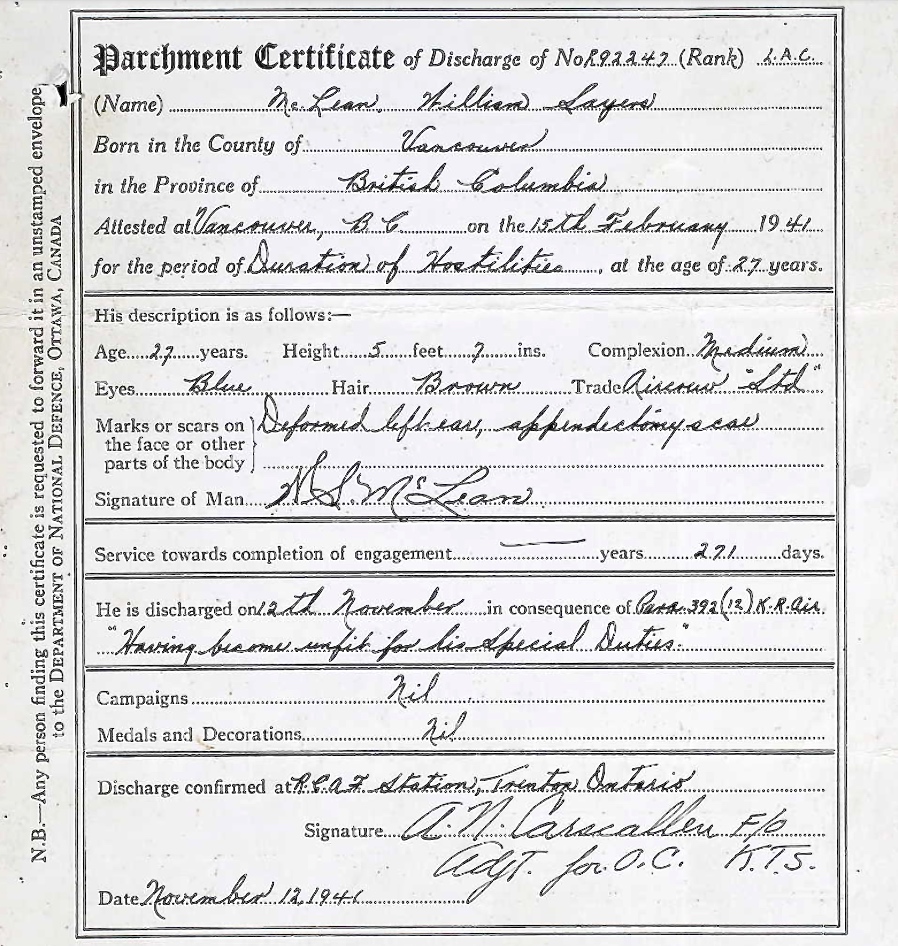 Parchment Certificate of Discharge of No R92247 (Rank) L.A.C.
(Name) McLean, William Sayers
Born in the County of Vancouver
in the Province of British Columbia
Attested at Vancouver, B C on the 15th February 1941
for the period of Duration of Hostilities, at the age of 27 years.
His description is as follows:—
Age 27 years. Height 5 feet 7 ins. Complexion Medium
Eyes Blue Hair Brown Trade Aircrew "Std"
Marks or scars on
the face or other
parts of the body
Deformed left ear, appendectomy scar
Signature of Man W.S. McLean
Service towards completion of engagement — years 271 days.
He is discharged on 12th November in consequence of Para. 392(12) K.R. Air.
"Having become unfit for his Special Duties."
Campaigns Nil
Medals and Decorations Nil
Discharge confirmed at R.C.A.F Station, Trenton Ontario
Signature A. N. Carscallen F/O
Adjt. for O.C. K.T.S.
Date November 12, 1941
N.B.—Any person finding this certificate is requested to forward it in an unstamped envelope
to the DEPARTMENT OF NATIONAL DEFENCE, OTTAWA, CANADA